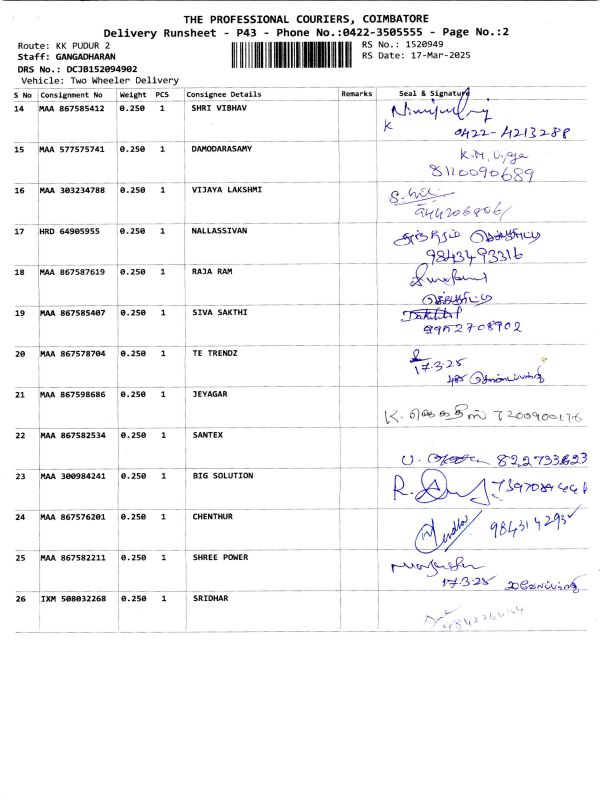 THE PROFESSIONAL COURIERS, COIMBATORE
Delivery Runsheet - P43 - Phone No.:0422-3505555 - Page No.:2
Route: KK PUDUR 2 RS No.: 1520949
Staff: GANGADHARAN RS Date: 17-Mar-2025
DRS No.: DCJB152094902
Vehicle: Two Wheeler Delivery
S No Consignment No Weight PCS Consignee Details Remarks Seal & Signature
14 MAA 867585412 0.250 1 SHRI VIBHAV
K 0422-4213288
15 MAA 577575741 0.250 1 DAMODARASAMY K.M. Vijaya
8110090689
16 MAA 303234788 0.250 1 VIJAYA LAKSHMI
17 HRD 64905955 0.250 1 NALLASSIVAN
9843493316
18 MAA 867587619 0.250 1 RAJA RAM
19 MAA 867585407 0.250 1 SIVA SAKTHI
9952708902
20 MAA 867578704 0.250 1 TE TRENDZ
17.3.25
21 MAA 867598686 0.250 1 JEYAGAR
K. 7200900176
22 MAA 867582534 0.250 1 SANTEX
822733623
23 MAA 300984241 0.250 1 BIG SOLUTION
24 MAA 867576201 0.250 1 CHENTHUR
25 MAA 867582211 0.250 1 SHREE POWER
17.3.25
26 IXM 508032268 0.250 1 SRIDHAR